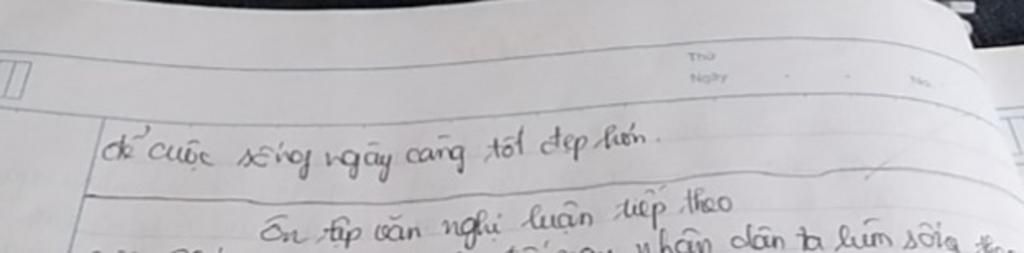 Thứ
Ngày
No.
để cuộc sống ngày càng tốt đẹp hơn.
Ôn tập văn nghị luận tiếp theo
nhân dân ta luôn sống